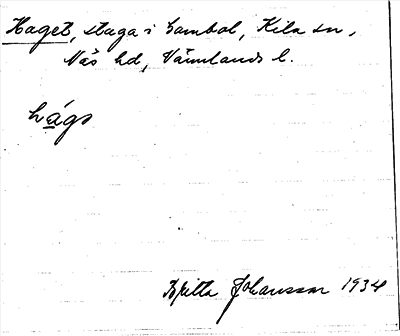 Haget, stuga i Sambol, Kila sn,
Näs hd, Värmlands l.
hágə
Britta Johansson 1934